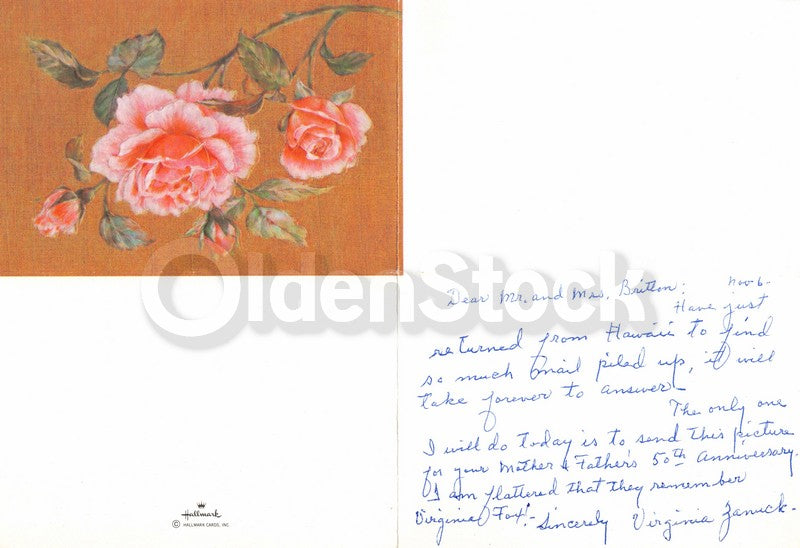 OldenStock
Dear Mr. and Mrs. Britton: Nov-6-
Have just
returned from Hawaii to find
so much mail piled up, it will
take forever to answer-
The only one
I will do today is to send this picture
for your Mother & Father's 50th anniversary.
I am flattered that they remember
Virginia Fox!-
Sincerely Virginia Zanuck-
Hallmark
© HALLMARK CARDS, INC.